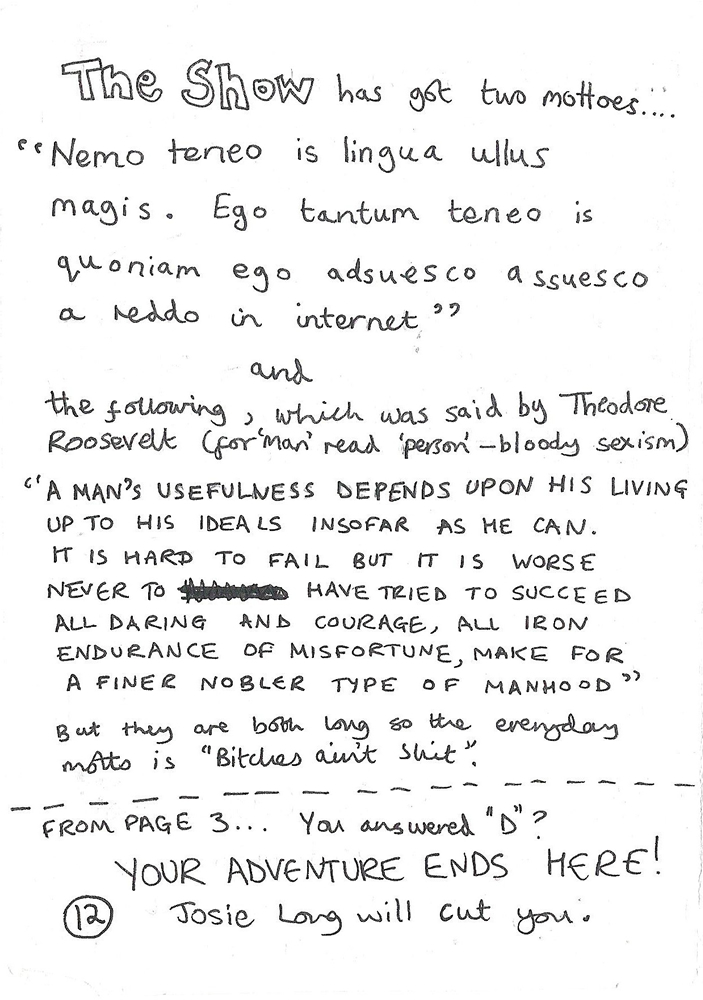 The Show has got two mottoes....
"Nemo teneo is lingua ullus
magis. Ego tantum teneo is
quoniam ego adsuesco assuesco
a reddo in internet"
and
the following, which was said by Theodore
Roosevelt (for 'man' read 'person' - bloody sexism)
"A MAN'S USEFULNESS DEPENDS UPON HIS LIVING
UP TO HIS IDEALS INSOFAR AS HE CAN.
IT IS HARD TO FAIL BUT IT IS WORSE
NEVER TO HAVE TRIED TO SUCCEED
ALL DARING AND COURAGE, ALL IRON
ENDURANCE OF MISFORTUNE, MAKE FOR
A FINER NOBLER TYPE OF MANHOOD"
But they are both long so the everyday
motto is "Bitches ain't shit".
FROM PAGE 3... You answered "D"?
YOUR ADVENTURE ENDS HERE!
12 Josie Long will cut you.